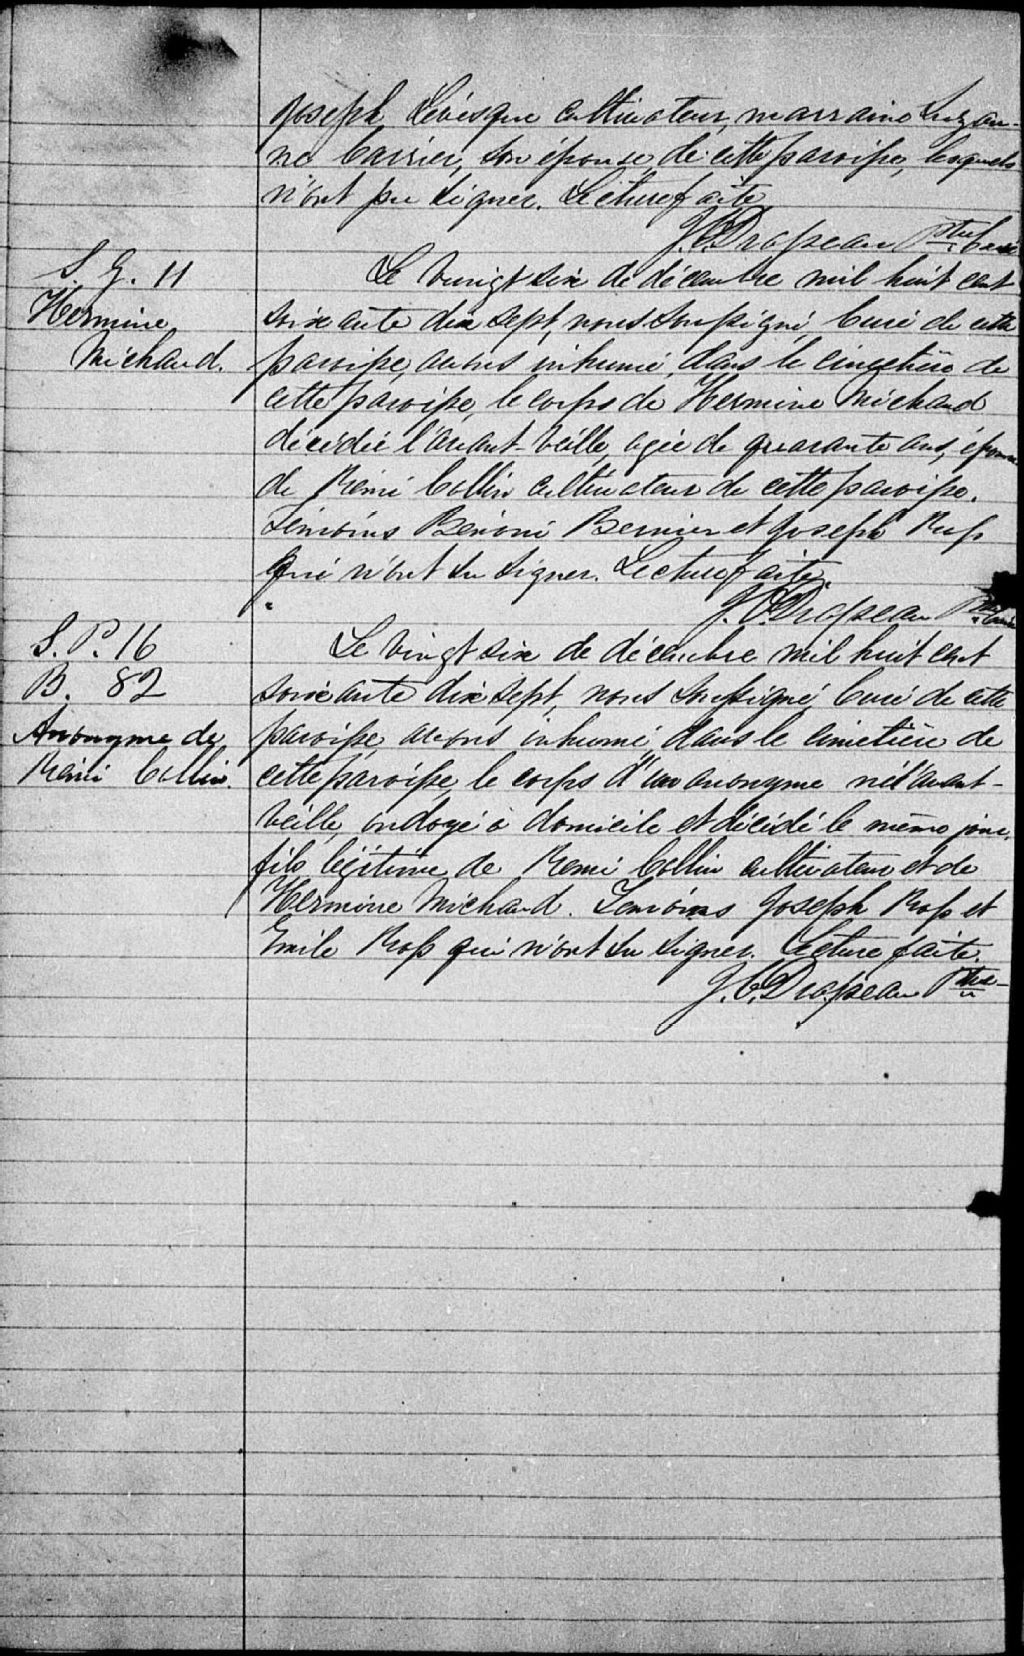 Joseph Lévesque cultivateur, marraine Suzan-
ne Carrier, son épouse de cette paroisse, lesquels
n'ont pu signer. Lecture faite
J. C. Drapeau Ptre Curé
S. G. 11
Hermine
Michaud.
Le vingt six de décembre mil huit cent
soixante dix sept, nous soussigné, Curé de cette
paroisse, avons inhumé, dans le cimetière de
cette paroisse, le corps de Hermine Michaud
décédée l'avant-veille, agée de quarante ans, épouse
de Rémi Collin cultivateur de cette paroisse.
Témoins Bénoni Bernier et Joseph Ross
qui n'ont su signer. Lecture faite.
J. C. Drapeau Ptre Curé
S. P. 16
B. 82
Anonyme de
Rémi Collin.
Le vingt six de décembre mil huit cent
soixante dix sept, nous soussigné, Curé de cette
paroisse, avons inhumé, dans le cimetière de
cette paroisse, le corps d'un anonyme né l'avant-
veille, ondoyé à domicile et décédé le même jour,
fils légitime de Rémi Collin cultivateur et de
Hermine Michaud. Témoins Joseph Ross et
Emile Ross qui n'ont su signer. Lecture faite.
J. C. Drapeau Ptre